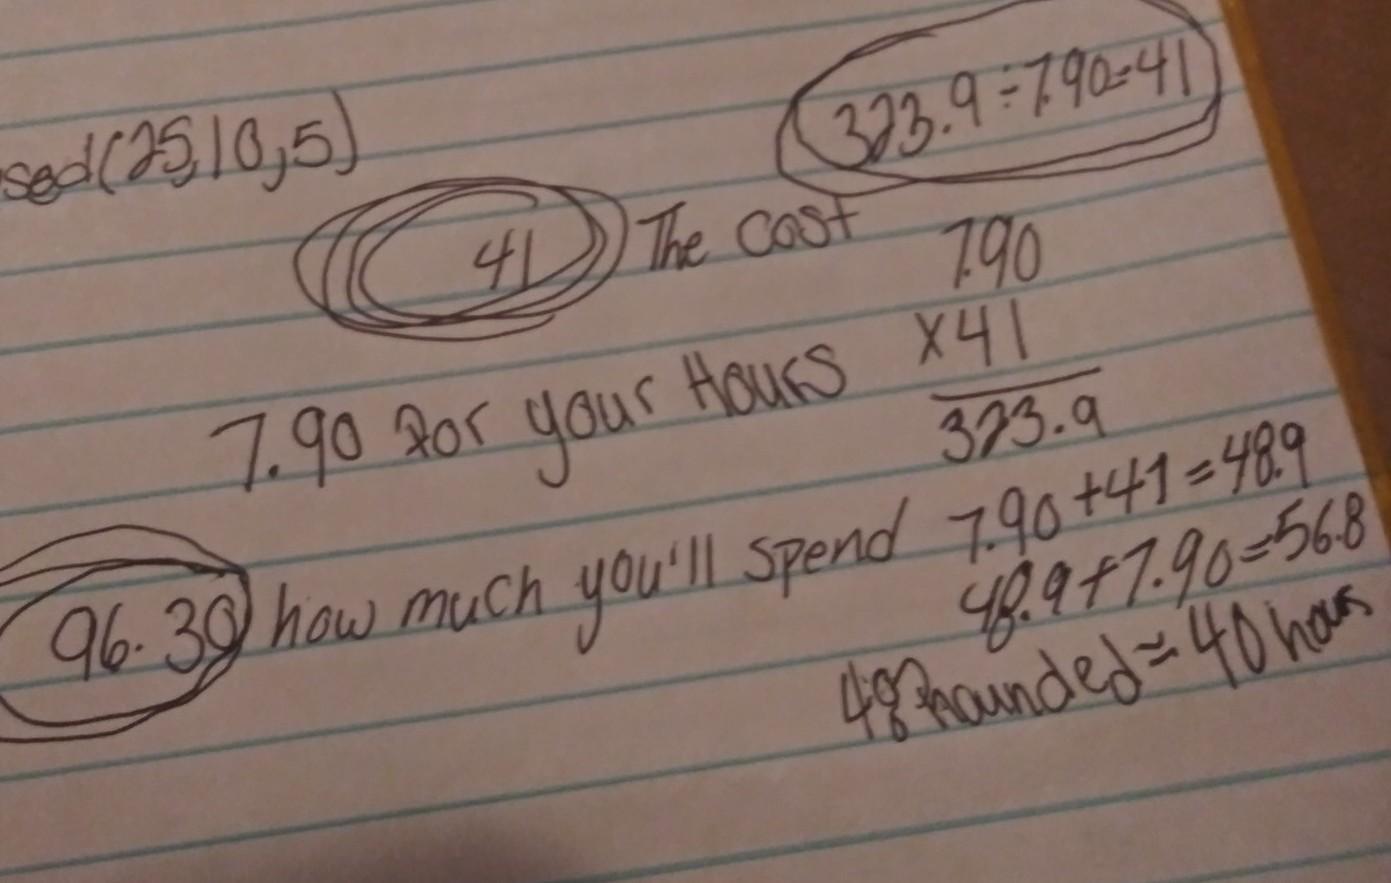 323.9 ÷ 7.90 = 41
sed(25,10,5)
41 The cost 7.90
x41
7.90 for your Hours 323.9
96.30 how much you'll spend 7.90+41=48.9
48.9+7.90=56.8
48 rounded ≈ 40 hours